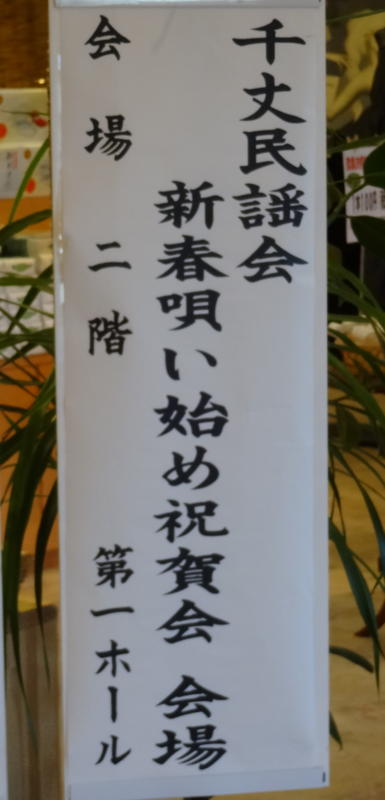 千丈民謡会
新春唄い始め祝賀会 会場
会場 二階 第一ホール